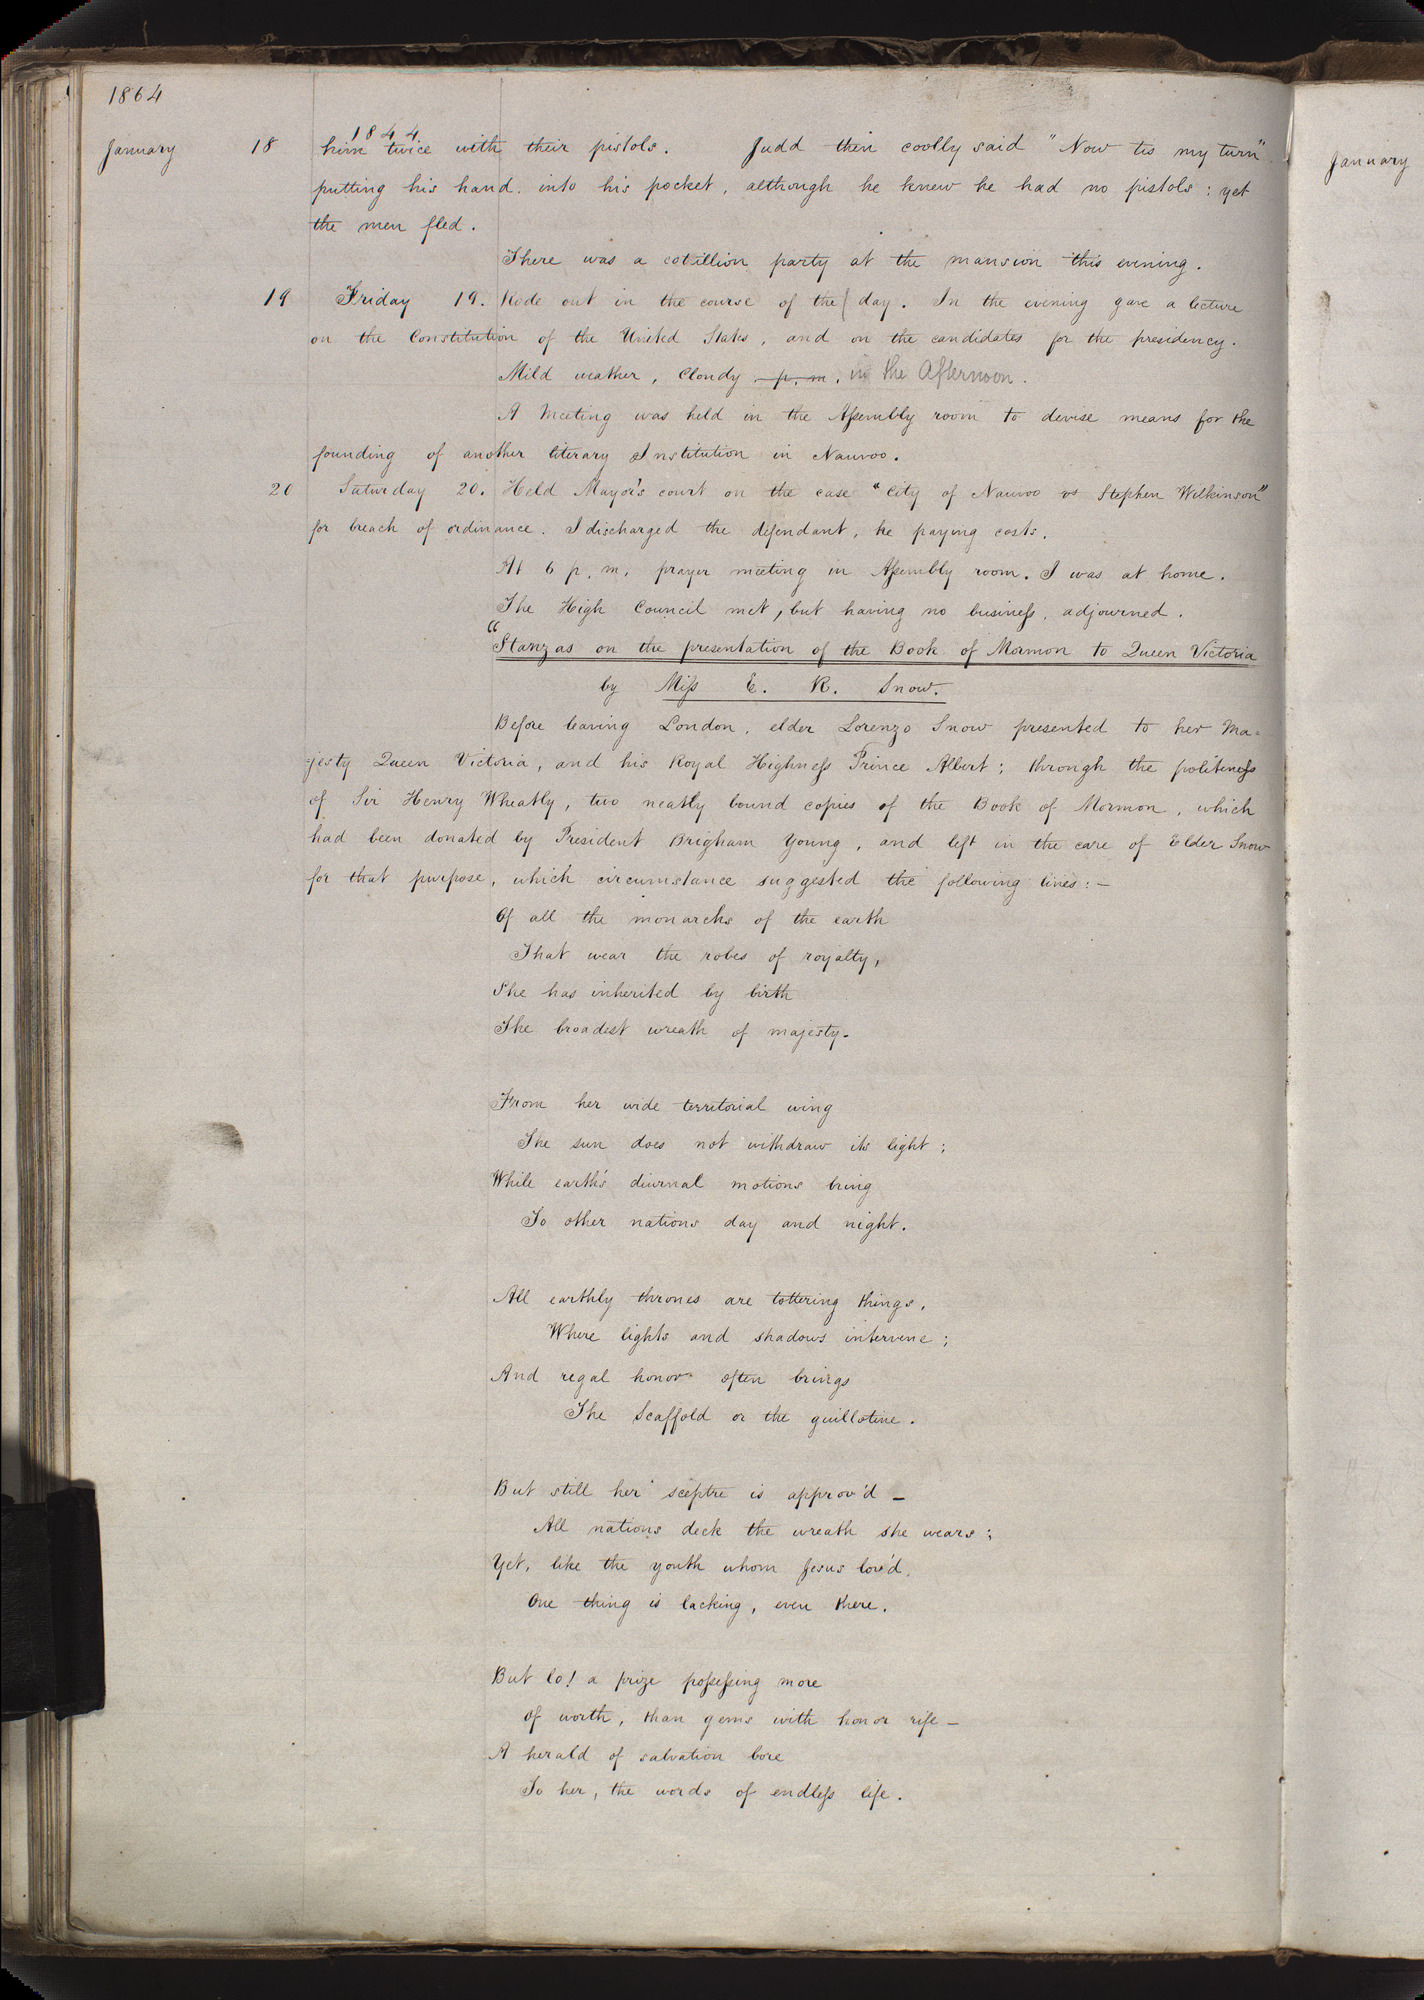 1864
1844
January 18 him twice with their pistols. Judd then coolly said "Now tis my turn"
putting his hand into his pocket, although he knew he had no pistols: yet
the men fled.
There was a cotillion party at the mansion this evening.
19 Friday 19. Rode out in the course of the day. In the evening gave a lecture
on the Constitution of the United States, and on the candidates for the presidency.
Mild weather, Cloudy p. m. in the Afternoon.
A Meeting was held in the Assembly room to devise means for the
founding of another literary Institution in Nauvoo.
20 Saturday 20. Held Mayor's court on the case "City of Nauvoo vs Stephen Wilkinson"
for breach of ordinance. I discharged the defendant, he paying costs.
At 6 p. m. prayer meeting in Assembly room. I was at home.
The High Council met, but having no business, adjourned.
"Stanzas on the presentation of the Book of Mormon to Queen Victoria
by Miss E. R. Snow.
Before leaving London, elder Lorenzo Snow presented to her Ma=
-jesty Queen Victoria, and his Royal Highness Prince Albert; through the politeness
of Sir Henry Wheatly, two neatly bound copies of the Book of Mormon, which
had been donated by President Brigham Young, and left in the care of Elder Snow
for that purpose, which circumstance suggested the following lines:—
Of all the monarchs of the earth
That wear the robes of royalty,
She has inherited by birth
The broadest wreath of majesty.
From her wide territorial wing
The sun does not withdraw its light;
While earth's diurnal motions bring
To other nations day and night.
All earthly thrones are tottering things,
Where lights and shadows intervene;
And regal honor often brings
The Scaffold or the guillotine.
But still her sceptre is approv'd —
All nations deck the wreath she wears;
Yet, like the youth whom Jesus lov'd,
One thing is lacking, even there.
But lo! a prize possessing more
Of worth, than gems with honor rife —
A herald of salvation bore
To her, the words of endless life.
January